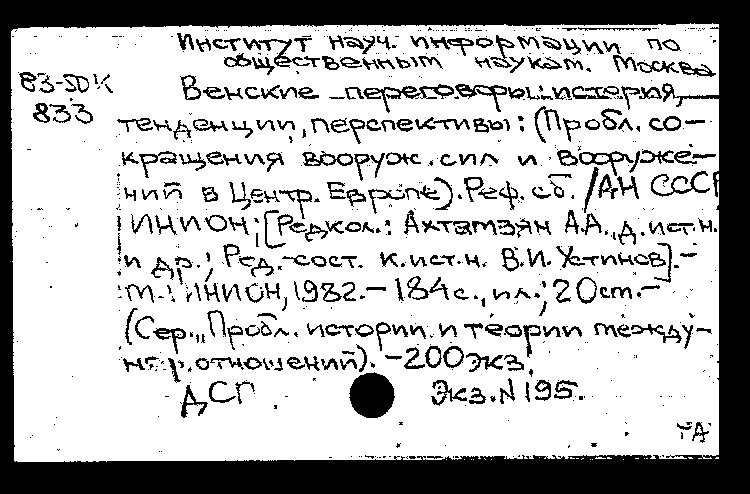 Институт науч. информации по
общественным наукам. Москва
83-5ДК
833
Венские переговоры: история,
тенденции, перспективы: (Пробл. со-
кращения вооруж. сил и вооруже-
ний в Центр. Европе). Реф. сб. / АН СССР
ИНИОН; [Редкол.: Ахтамзян А.А., д. ист. н.
и др.; Ред.-сост. к. ист. н. В.И. Устинов].-
М.: ИНИОН, 1982. - 184 с., ил.; 20 см. -
(Сер. „Пробл. истории и теории между-
нар. отношений). - 200 экз.
ДСП. Экз. N 195.